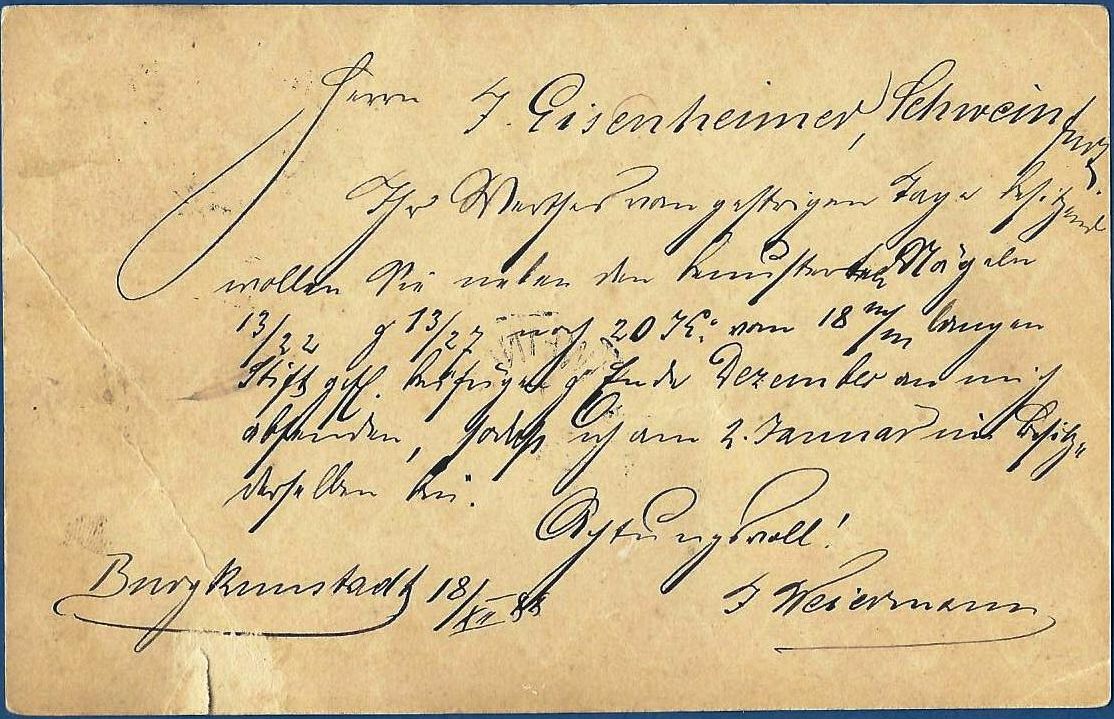 Herrn J. Eisenheimer, Schweinfurt.
Ihr Werthes vom gestrigen Tage besitzend
wollen Sie neben den bemusterten Nägeln
13/22 & 13/27 noch 20 K. von 18 m/m langen
Stift gefl. beifügen & Ende Dezember an mich
absenden, sodaß ich am 2. Januar im Besitz
derselben bin.
Achtungsvoll!
Burgkunstadt 18/XII 88
J Weiermann